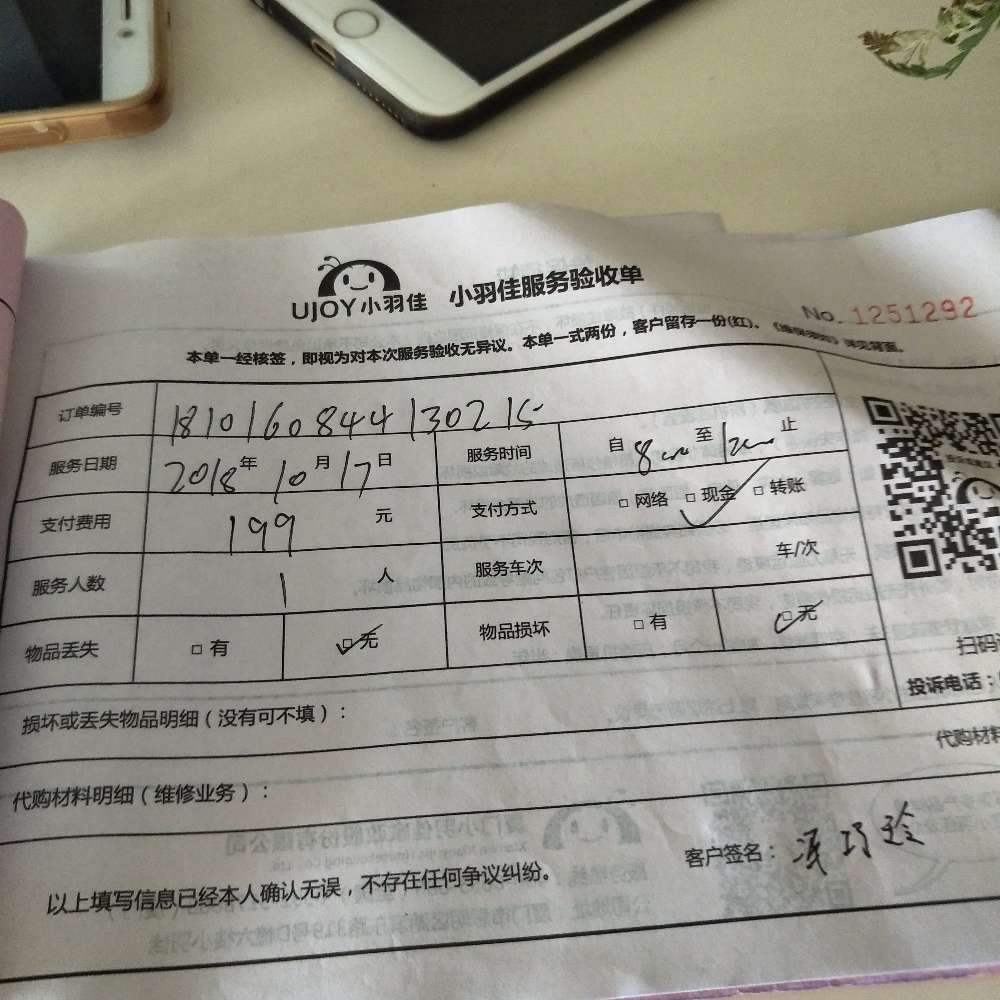 UJOY小羽佳 小羽佳服务验收单
No. 1251292
本单一经核签，即视为对本次服务验收无异议。本单一式两份，客户留存一份(红)。《维保须知》详见背面。
订单编号 18101608441302 15
服务日期 2018年10月17日 服务时间 自 8:00 至 12:00 止
支付费用 199 元 支付方式 □ 网络 □ 现金 □ 转账
服务人数 1 人 服务车次 车/次
物品丢失 □ 有 □ 无 物品损坏 □ 有 □ 无
扫码
投诉电话：
损坏或丢失物品明细（没有可不填）：
代购材料
代购材料明细（维修业务）：
以上填写信息已经本人确认无误，不存在任何争议纠纷。
客户签名： 巧玲